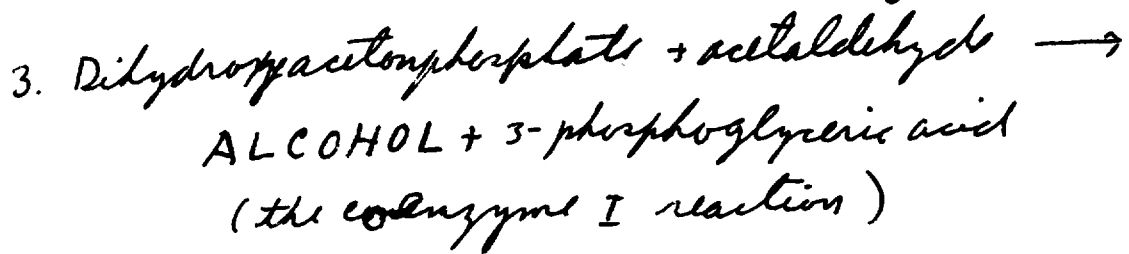 3. Dihydroxyacetonphosphate + acetaldehyde →
ALCOHOL + 3-phosphoglyceric acid
(the coenzyme I reaction)